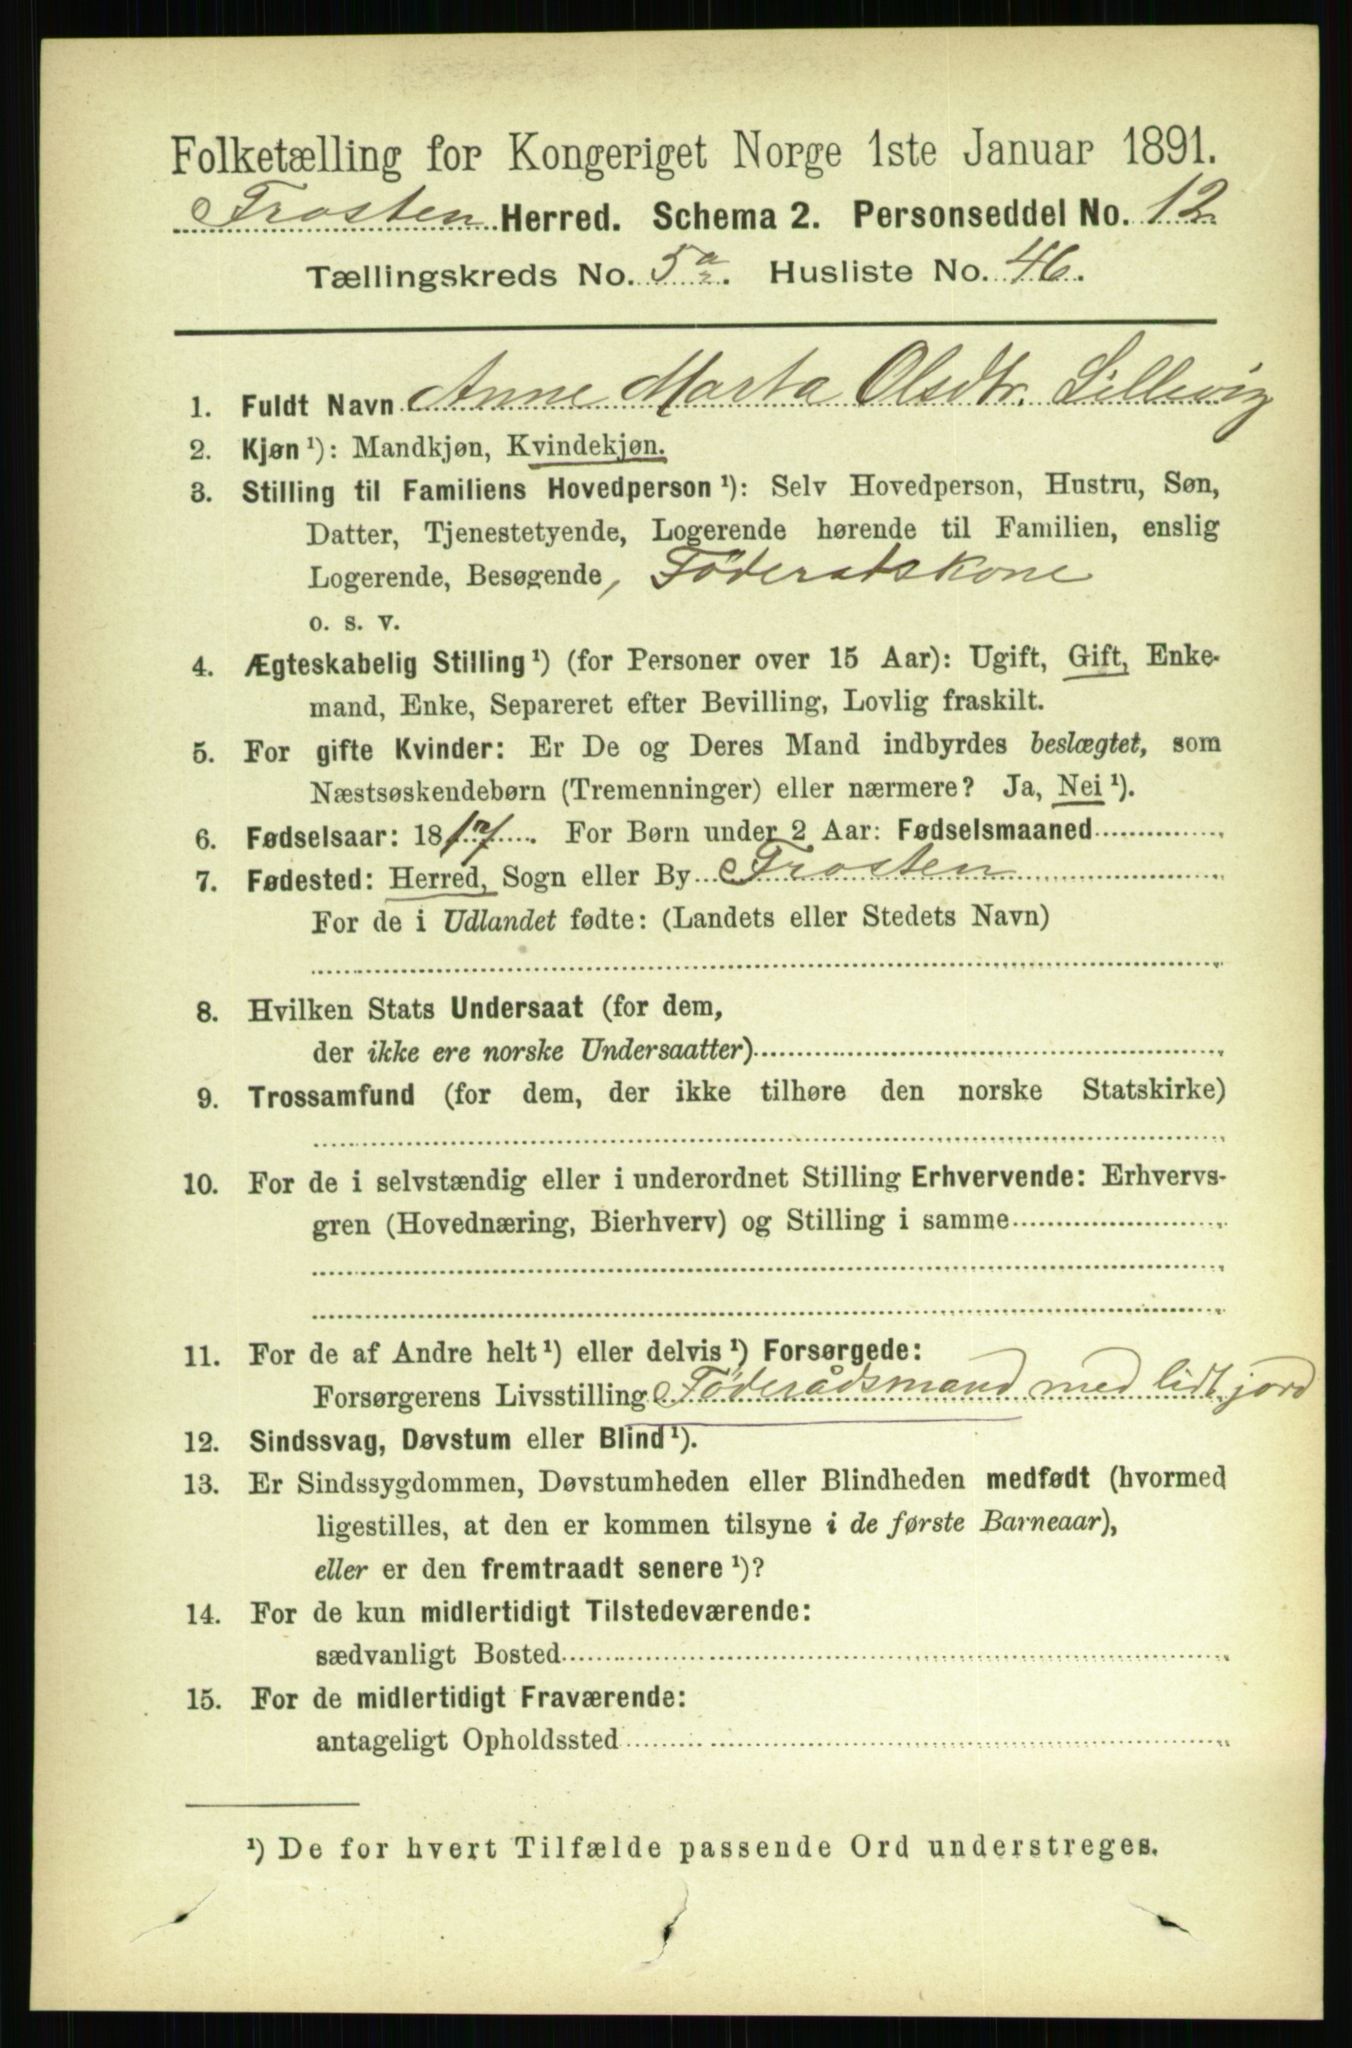 Folketælling for Kongeriget Norge 1ste Januar 1891.
Frosten Herred. Schema 2. Personseddel No. 12
Tællingskreds No. 5a. Husliste No. 46.
1. Fuldt Navn Anne Marta Olsdtr. Lillevig
2. Kjøn ¹): Mandkjøn, Kvindekjøn.
3. Stilling til Familiens Hovedperson ¹): Selv Hovedperson, Hustru, Søn,
Datter, Tjenestetyende, Logerende hørende til Familien, enslig
Logerende, Besøgende, Föderadskone
o. s. v.
4. Ægteskabelig Stilling ¹) (for Personer over 15 Aar): Ugift, Gift, Enke-
mand, Enke, Separeret efter Bevilling, Lovlig fraskilt.
5. For gifte Kvinder: Er De og Deres Mand indbyrdes beslægtet, som
Næstsøskendebørn (Tremenninger) eller nærmere? Ja, Nei ¹).
6. Fødselsaar: 1817. For Børn under 2 Aar: Fødselsmaaned
7. Fødested: Herred, Sogn eller By Frosten
For de i Udlandet fødte: (Landets eller Stedets Navn)
8. Hvilken Stats Undersaat (for dem,
der ikke ere norske Undersaatter)
9. Trossamfund (for dem, der ikke tilhøre den norske Statskirke)
10. For de i selvstændig eller i underordnet Stilling Erhvervende: Erhvervs-
gren (Hovednæring, Bierhverv) og Stilling i samme
11. For de af Andre helt ¹) eller delvis ¹) Forsørgede:
Forsørgerens Livsstilling Föderådsmand med lidt jord
12. Sindssvag, Døvstum eller Blind ¹).
13. Er Sindssygdommen, Døvstumheden eller Blindheden medfødt (hvormed
ligestilles, at den er kommen tilsyne i de første Barneaar),
eller er den fremtraadt senere ¹)?
14. For de kun midlertidigt Tilstedeværende:
sædvanligt Bosted
15. For de midlertidigt Fraværende:
antageligt Opholdssted
¹) De for hvert Tilfælde passende Ord understreges.